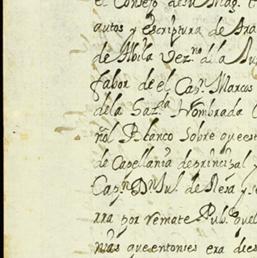 el Consejo de su Mag.
autos y escriptura de
de Abila Vez.no de la
fabor de el Cap.n Marcos
de la nombrada
ñol Blanco sobre que est
de Capellania de prinçipal y
Cap.n D.n Ju.l de Mesa y
rra por remate Pub.
nias que entonses era dies